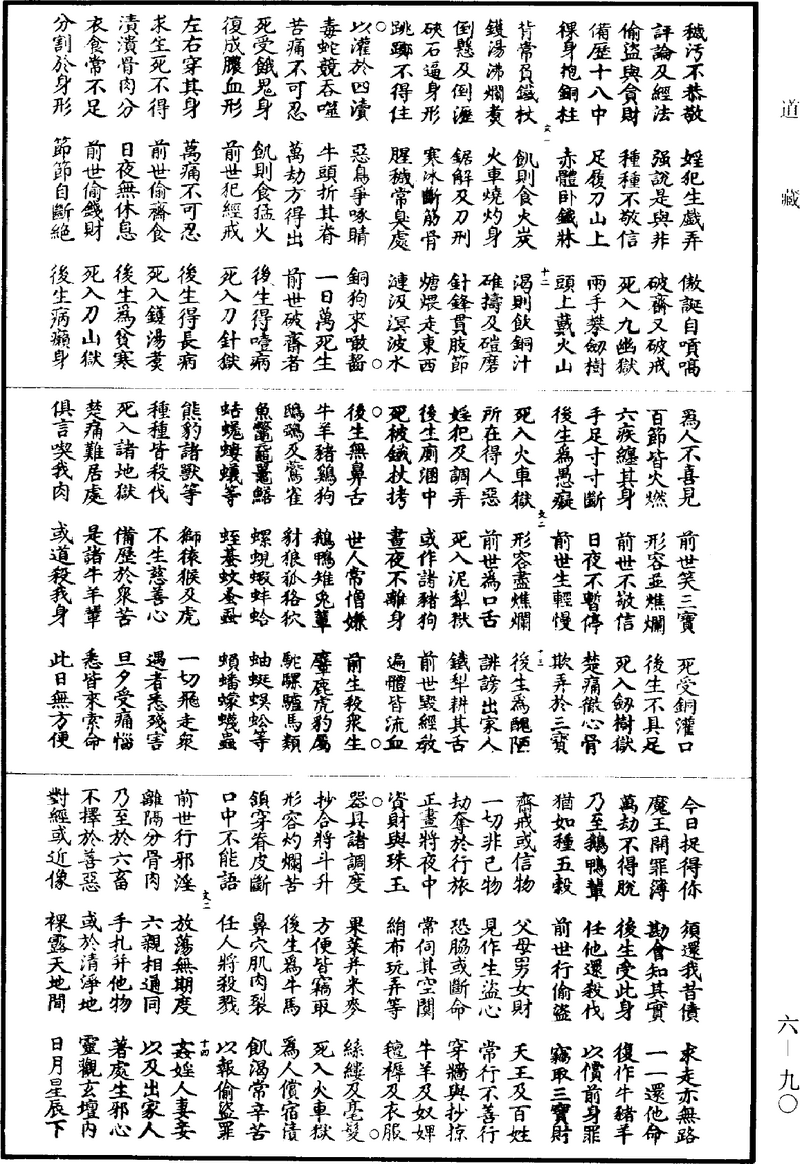 道藏
穢污不恭敬 婬犯生戲弄 傲誕自嗔喎
評論及經法 强說是與非 破齋又破戒
偷盜與貪財 種種不敬信 死入九幽獄
備歷十八中 足履刀山上 兩手攀劒樹
稞身抱銅柱 赤體卧鐵牀 頭上戴火山
文一 十二
背常負鐵杖 飢則食火炭 渴則飲銅汁
鑊湯沸爛煑 火車燒灼身 碓擣及磑磨
倒懸及倒瀝 鋸解及刀刑 針鋒貫肢節
硤石逼身形 寒冰斷筋骨 煻煨走東西
跳躑不得住 腥穢常臭處 漣汲溟波水
以灌於四瀆 惡鳥爭啄睛 銅狗來齧
毒蛇競吞噬 牛頭折其脊 一日萬死生
苦痛不可忍 萬劫方得出 前世破齋者
死受餓鬼身 飢則食猛火 後生得噎病
復成膿血形 前世犯經戒 死入刀針獄
左右穿其身 萬痛不可忍 後生得長病
求生死不得 前世偷齋食 死入鑊湯煑
漬漬骨肉分 日夜無休息 後生為貧寒
衣食常不足 前世偷錢財 死入刀山獄
分割於身形 節節自斷絕 後生病癩身
為人不喜見 前世笑三寶 死受銅灌口
百節皆火燃 形容並燋爛 後生不具足
六疾纏其身 前世不敬信 死入劒樹獄
手足寸寸斷 日夜不暫停 楚痛徹心骨
後生為愚癡 前世生輕慢 欺弄於三寶
文二 十三
死入火車獄 形容盡燋爛 後生為醜陋
所在得人惡 前世為口舌 誹謗出家人
婬犯及調弄 死入泥犁獄 鐵犁耕其舌
後生廁溷中 或作諸豬狗 前世毀經教
死被鐵杖拷 晝夜不離身 遍體皆流血
後生無鼻舌 世人常僧嫌 前生殺衆生
牛羊豬鷄狗 鵝鴨雉兔輩 麞鹿虎豹屬
鴟鴞及鶯雀 豺狼狐狢狖 駝騾驢馬類
魚鼈黿鼉鱔 螺蜆蝦蚌蛤 蚰蜒蜈蚣等
蛣蜣螻蟻等 蛭蟇蚊蚤蝨 蝢蟠蠓蠛蟲
熊豹諸獸等 獅猿猴及虎 一切飛走衆
種種皆殺伐 不生慈善心 遇者悉殘害
死入諸地獄 備歷於衆苦 旦夕受痛惱
楚痛難居處 是諸牛羊輩 悉皆來索命
俱言喫我肉 或道殺我身 此日無方便
今日捉得你 須還我昔債 求走亦無路
魔王開罪薄 勘會知其實 一一還他命
萬劫不得脫 後生受此身 復作牛豬羊
乃至鵝鴨輩 任他還殺伐 以償前身罪
猶如種五穀 前世行偷盜 竊取三寶財
齋戒或信物 父母男女財 天王及百姓
一切非已物 見作生盜心 常行不善行
劫奪於行旅 恐脇或斷命 穿牆與抄掠
正晝將夜中 常伺其空闕 牛羊及奴婢
資財與珠玉 綃布玩弄等 氈褥及衣服
器具諸調度 果菜并米麥 絲縷及毫髮
抄合將斗升 方便皆竊取 死入火車獄
形容灼爛苦 後生為牛馬 為人償宿債
領穿脊皮斷 鼻穴肌肉裂 飢渴常辛苦
口中不能語 任人將殺戮 以報偷盜罪
文二 十四
前世行邪淫 放蕩無期度 姦婬人妻妾
離隔分骨肉 六親相通同 以及出家人
乃至於六畜 手扎并他物 著處生邪心
不擇於善惡 或於清淨地 靈觀玄壇內
對經或近像 裸露天地間 日月星辰下
六－九〇